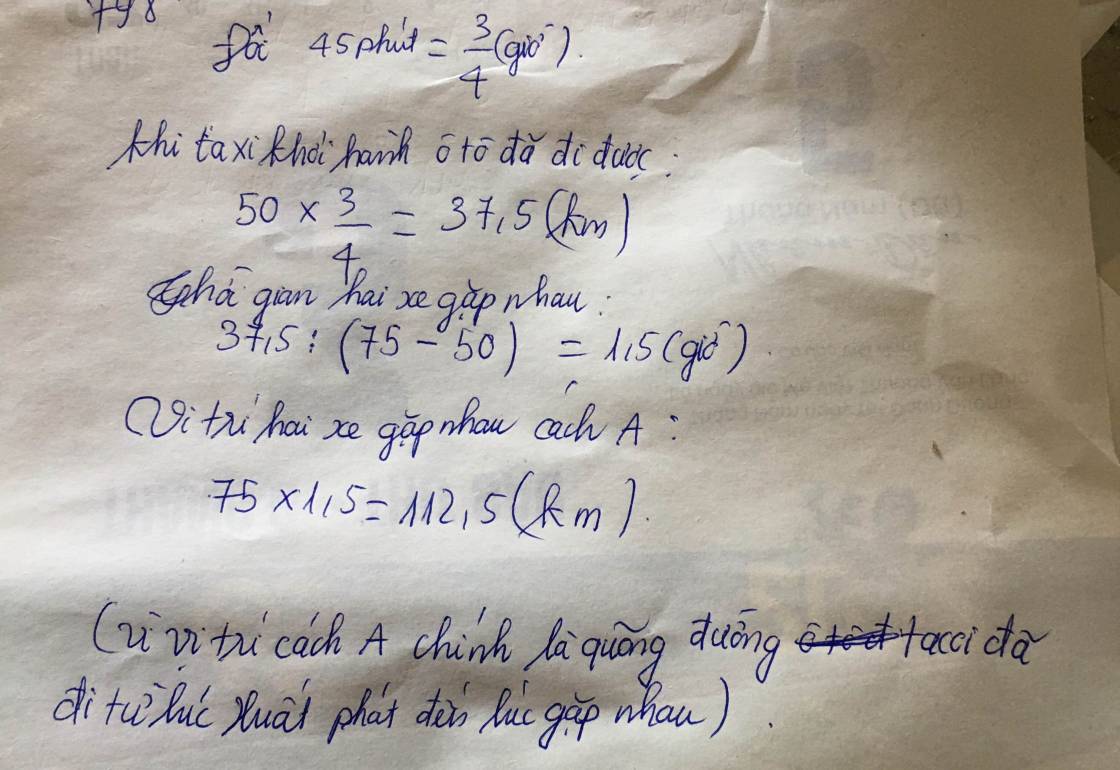 798
Đổi 45 phút = 3/4 (giờ).
Khi taxi khởi hành ô tô đã đi được:
50 × 3/4 = 37,5 (km)
gian hai xe gặp nhau:
37,5 : (75 - 50) = 1,5 (giờ).
Vị trí hai xe gặp nhau cách A:
75 × 1,5 = 112,5 (km).
(vì vị trí cách A chính là quãng đường tacci đã
đi từ lúc xuất phát đến lúc gặp nhau).